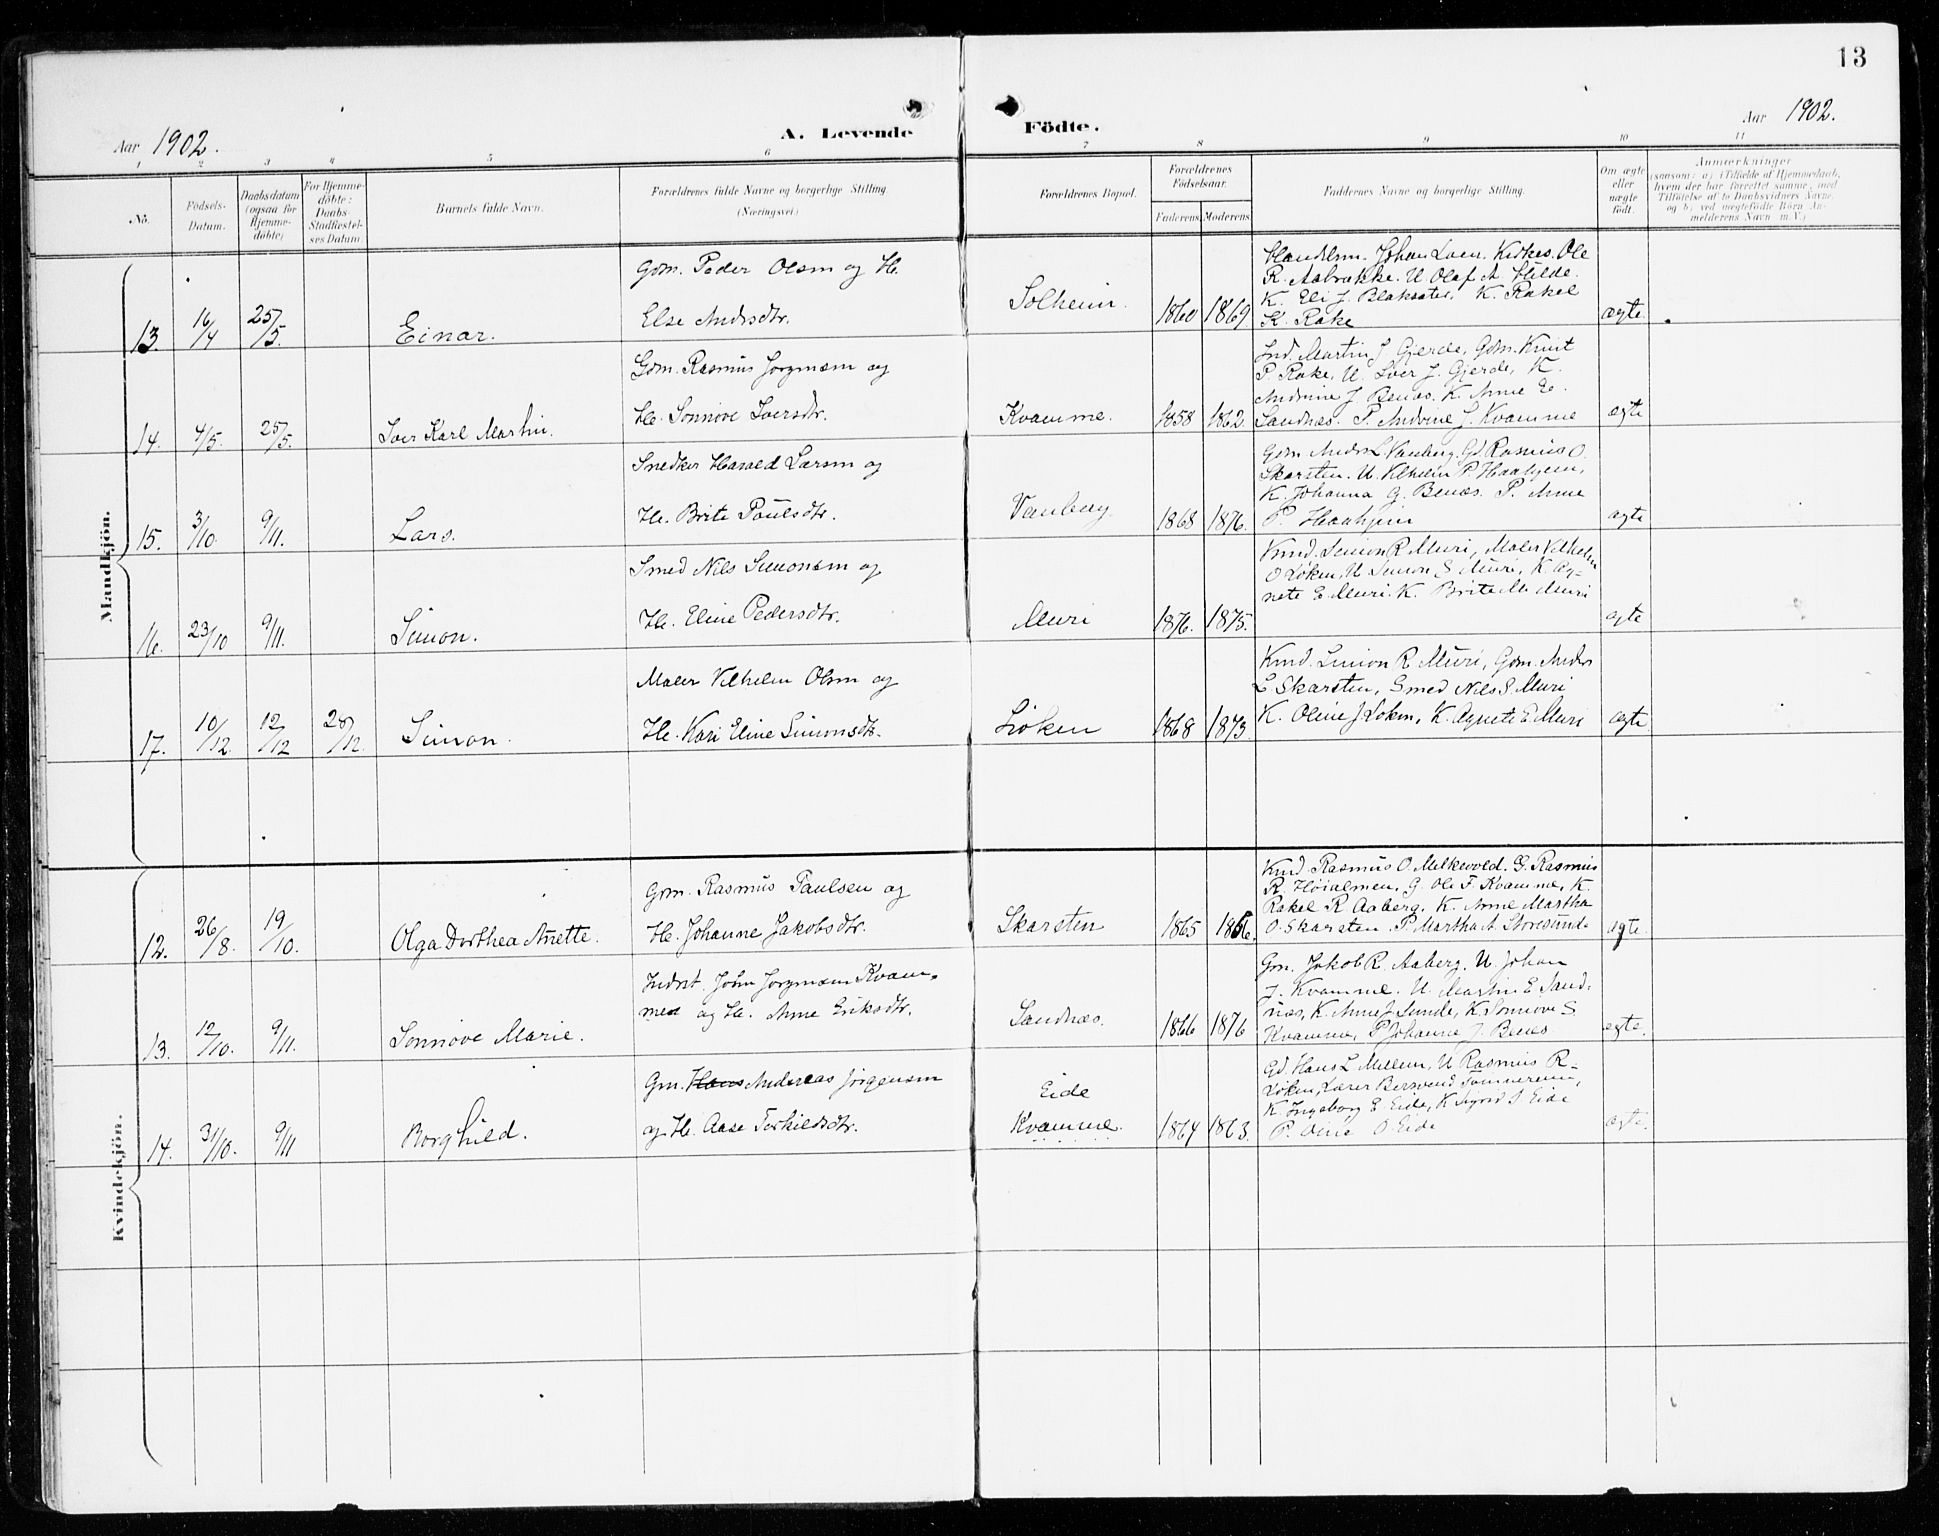 13
Aar 1902.
A. Levende Födte.
Aar 1902.
1 2 3 4 5 6 7 8 9 10 11
No.
Födsels-
Datum.
Daabsdatum
(ogsaa for
Hjemme-
döbte)
For Hjemme-
döbte:
Daabs-
Stadfæstel-
ses Datum.
Barnets fulde Navn.
Forældrenes fulde Navne og borgerlige Stilling
(Næringsvei.)
Forældrenes Bopæl.
Forældrenes
Födselsaar.
Faderens Moderens
Faddernes Navne og borgerlige Stilling.
Om ægte
eller
uægte
födt.
Anmærkninger
(saasom: a) i Tilfælde af Hjemmedaab,
hvem der har forrettet samme, med
Tilföielse af to Daabsvidners Navne,
og b) ved uægtefödte Börn An-
melderens Navn m. V.)
Mandkjön.
13. 16/4 25/5. Einar.
Gdm. Peder Olsen og H.
Else Andrsdtr.
Solheim. 1860 1869
Handelsm. Johan Loen, Kirkes. Ole
R. Aabrække. U. Olaf A Hilde.
K. Eli J. Blaksæter. K. Rakel
K. Rake
ægte
14. 4/5. 25/5. Iver Karl Martin.
Gdm. Rasmus Jørgensen og
H. Sønnøve Iversdtr.
Kvamme. 1858 1862.
Ind. Martin J. Gjerde, Gdm. Knut
P. Rake, U. Iver J. Gjerde, K.
Andrine J Benæs. K. Anne E.
Sandnæs. P. Andrine J. Kvamme
ægte
15. 3/10. 9/11. Lars.
Snedker Harald Larsen og
H. Brite Paulsdtr.
Vanberg 1868 1876.
Gdm Andrs L. Vanberg. Gd. Rasmus O.
Skarsten. U. Vilhelm P Haahjem,
K. Johanna G. Benæs. P. Anne
P. Haahjem
ægte
16. 23/10 9/11. Simon.
Smed Nils Simonsen og
H. Eline Pedersdtr.
Muri 1876. 1875.
Kmd. Simon R Muri, Maler Vilhelm
O Løken, U Simon S Muri, K Ag-
nete E Muri. K. Brite M. Muri
ægte
17. 10/12 12/12 28/12. Simon.
Maler Vilhelm Olsen og
H. Kari Eline Simonsdtr.
Løken 1868 1873.
Kmd. Simon R. Muri, Gdm. Anders
L Skarsten, Smed Nils S. Muri
K. Oline J Løken, K. Agnete E Muri
ægte
Kvindekjön.
12. 26/8. 19/10. Olga Dorthea Anette.
Gdm. Rasmus Paulsen og
H. Johanne Jakobsdtr.
Skarsten 1865 1866.
Kmd. Rasmus O. Melkevold. G. Rasmus
R. Høialmen, G. Ole F. Kvamme, K.
Rakel R Aaberg. K. Anne Martha
O. Skarsten. P Martha A. Storesunde
ægte.
13. 12/10. 9/11. Sønnøve Marie.
Inderst. John Jørgensen Kvam-
men og H. Anne Eriksdtr.
Sandnæs. 1866 1876
Gm. Jakob R. Aaberg. U. Johan
J. Kvamme. U. Martin E Sand-
næs, K. Anne J Sunde, K. Sønnøve S.
Kvamme, P Johanne J. Benæs
ægte.
14. 31/10. 9/11 Borghild.
Gm. Hans Andreas Jørgensen
og H. Aase Terkildsdtr.
Eide
Kvamme. 1864 1863.
Gd. Hans L Mellem, U Rasmus R-
Løken, Lærer Bernard Tønnereim,
K. Ingeborg E Eide, K Sigrid S Eide
P. Oline O. Eide
ægte.